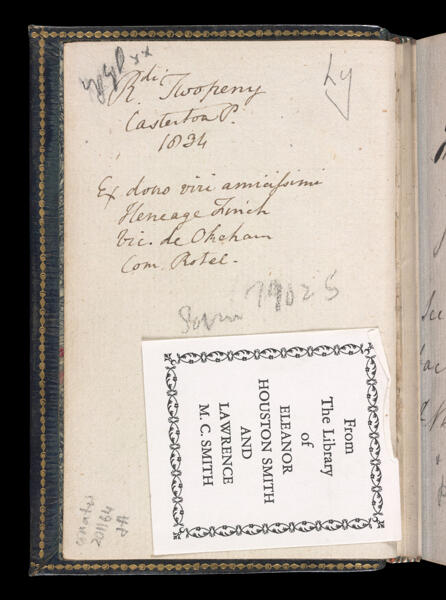 xx
Rdi Twopeny
Casterton P.
1834
Ex dono viri amicissimi
Heneage Finch
Vic. de Okeham
Com. Rotel.
From
The Library
of
ELEANOR
HOUSTON SMITH
AND
LAWRENCE
M. C. SMITH